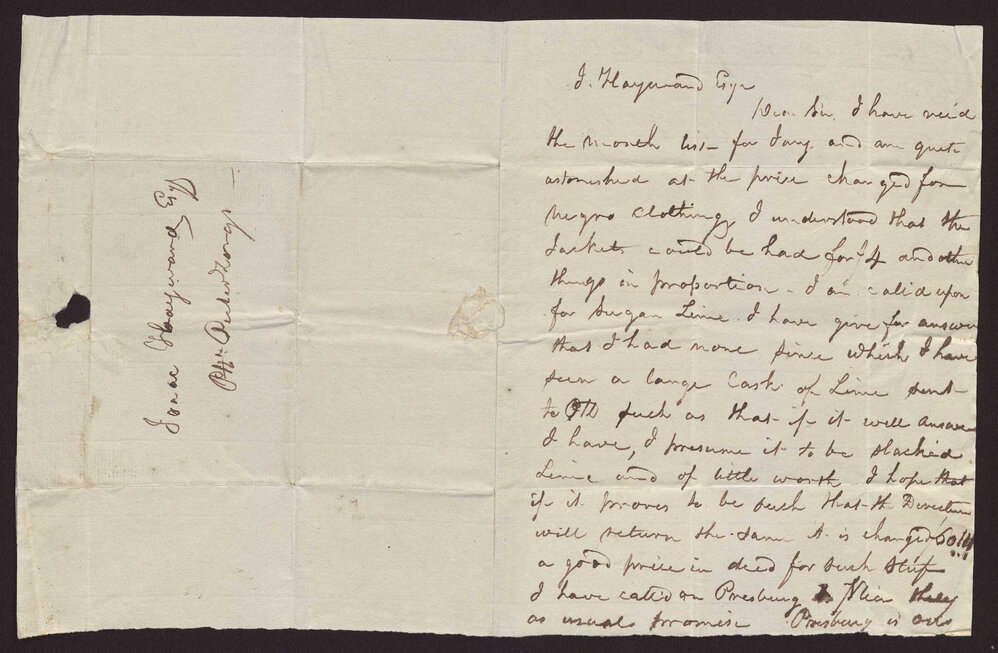 Isaac Hayward Esqr
Port Penderlongs
J. Hayward Esqr
Dear Sir, I have rec'd
the month list for Jany. and am quite
astonished at the price charged for
negro clothing, I understood that the
Jackets could be had for 4 and other
things in proportion - I am call'd upon
for Sugar Lime. I have give for answer
that I had none since which I have
seen a large Cask of Lime sent
to such as that if it will answer
I have, I presume it to be slacked
Lime and of little worth I hope that
if it proves to be such that the Directors
will return the same it is charged
a good price in deed for such stuf
I have called on Presburg they
as usual promise Presburg is